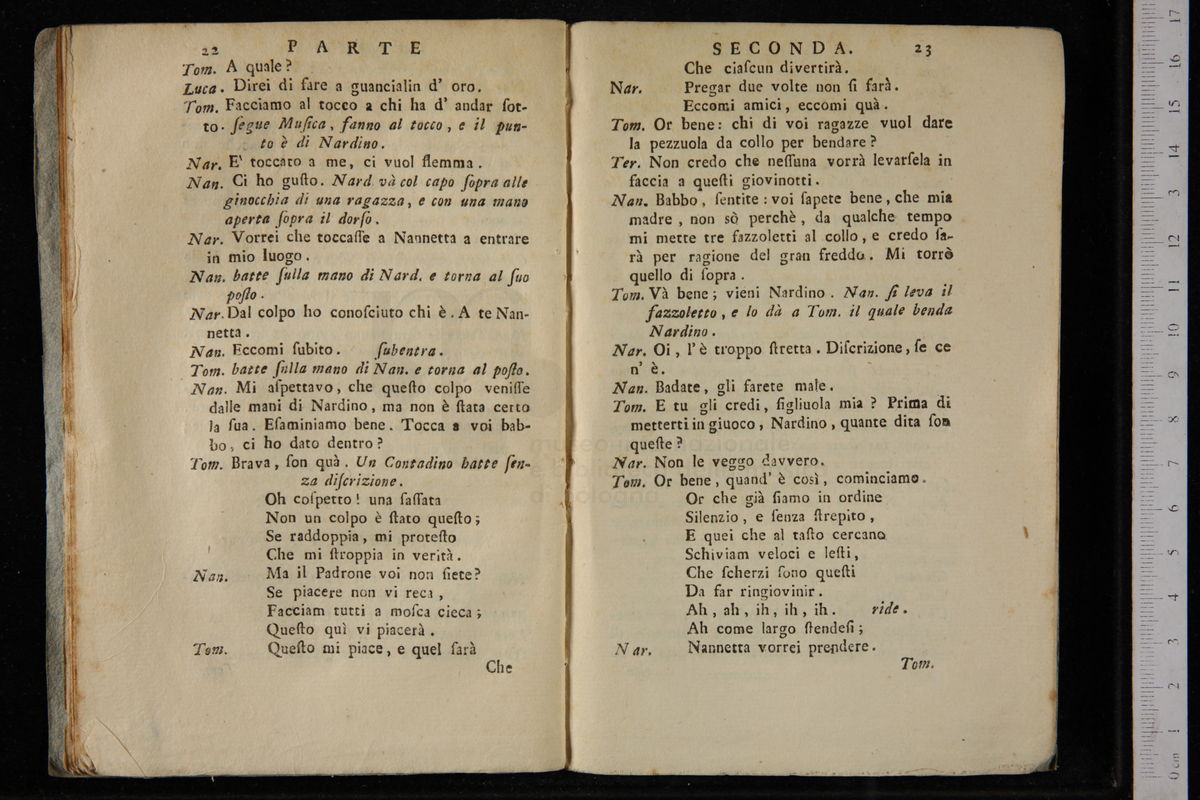 22 PARTE
Tom. A quale?
Luca. Direi di fare a guancialin d' oro.
Tom. Facciamo al tocco a chi ha d' andar ſot-
to. ſegue Muſica, fanno al tocco, e il pun-
to è di Nardino.
Nar. E' toccato a me, ci vuol flemma.
Nan. Ci ho guſto. Nard và col capo ſopra alle
ginocchia di una ragazza, e con una mano
aperta ſopra il dorſo.
Nar. Vorrei che toccaſſe a Nannetta a entrare
in mio luogo.
Nan. batte ſulla mano di Nard. e torna al ſuo
poſto.
Nar. Dal colpo ho conoſciuto chi è. A te Nan-
netta.
Nan. Eccomi ſubito. ſubentra.
Tom. batte ſulla mano di Nan. e torna al poſto.
Nan. Mi aſpettavo, che queſto colpo veniſſe
dalle mani di Nardino, ma non è ſtata certo
la ſua. Eſaminiamo bene. Tocca a voi bab-
bo, ci ho dato dentro?
Tom. Brava, ſon quà. Un Contadino batte ſen-
za diſcrizione.
Oh coſpetto! una ſaſſata
Non un colpo è ſtato queſto;
Se raddoppia, mi proteſto
Che mi ſtroppia in verità.
Nan. Ma il Padrone voi non ſiete?
Se piacere non vi reca,
Facciam tutti a moſca cieca;
Queſto quì vi piacerà.
Tom. Queſto mi piace, e quel ſarà
Che
SECONDA. 23
Che ciaſcun divertirà.
Nar. Pregar due volte non ſi farà.
Eccomi amici, eccomi quà.
Tom. Or bene: chi di voi ragazze vuol dare
la pezzuola da collo per bendare?
Ter. Non credo che neſſuna vorrà levarſela in
faccia a queſti giovinotti.
Nan. Babbo, ſentite: voi ſapete bene, che mia
madre, non sò perchè, da qualche tempo
mi mette tre fazzoletti al collo, e credo ſa-
rà per ragione del gran freddo. Mi torrò
quello di ſopra.
Tom. Và bene; vieni Nardino. Nan. ſi leva il
fazzoletto, e lo dà a Tom. il quale benda
Nardino.
Nar. Oi, l' è troppo ſtretta. Diſcrizione, ſe ce
n' è.
Nan. Badate, gli farete male.
Tom. E tu gli credi, figliuola mia? Prima di
metterti in giuoco, Nardino, quante dita ſon
queſte?
Nar. Non le veggo davvero.
Tom. Or bene, quand' è così, cominciamo.
Or che già ſiamo in ordine
Silenzio, e ſenza ſtrepito,
E quei che al taſto cercano
Schiviam veloci e leſti,
Che ſcherzi ſono queſti
Da far ringiovinir.
Ah, ah, ih, ih, ih. ride.
Ah come largo ſtendeſi;
Nar. Nannetta vorrei prendere.
Tom.
0 cm 1 2 3 4 5 6 7 8 9 10 11 12 13 14 15 16 17